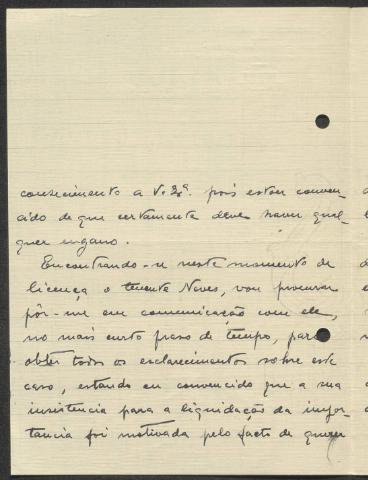 conhecimento a V. Exª. pois estou conven-
cido de que certamente deve haver qual-
quer engano.
Encontrando-se neste momento de
licença o tenente Neves, vou procurar
pôr-me em comunicação com ele,
no mais curto praso de tempo, para
obter todos os esclarecimentos sobre este
caso, estando eu convencido que a sua
insistencia para a liquidação da impor-
tancia foi motivada pelo facto de querer